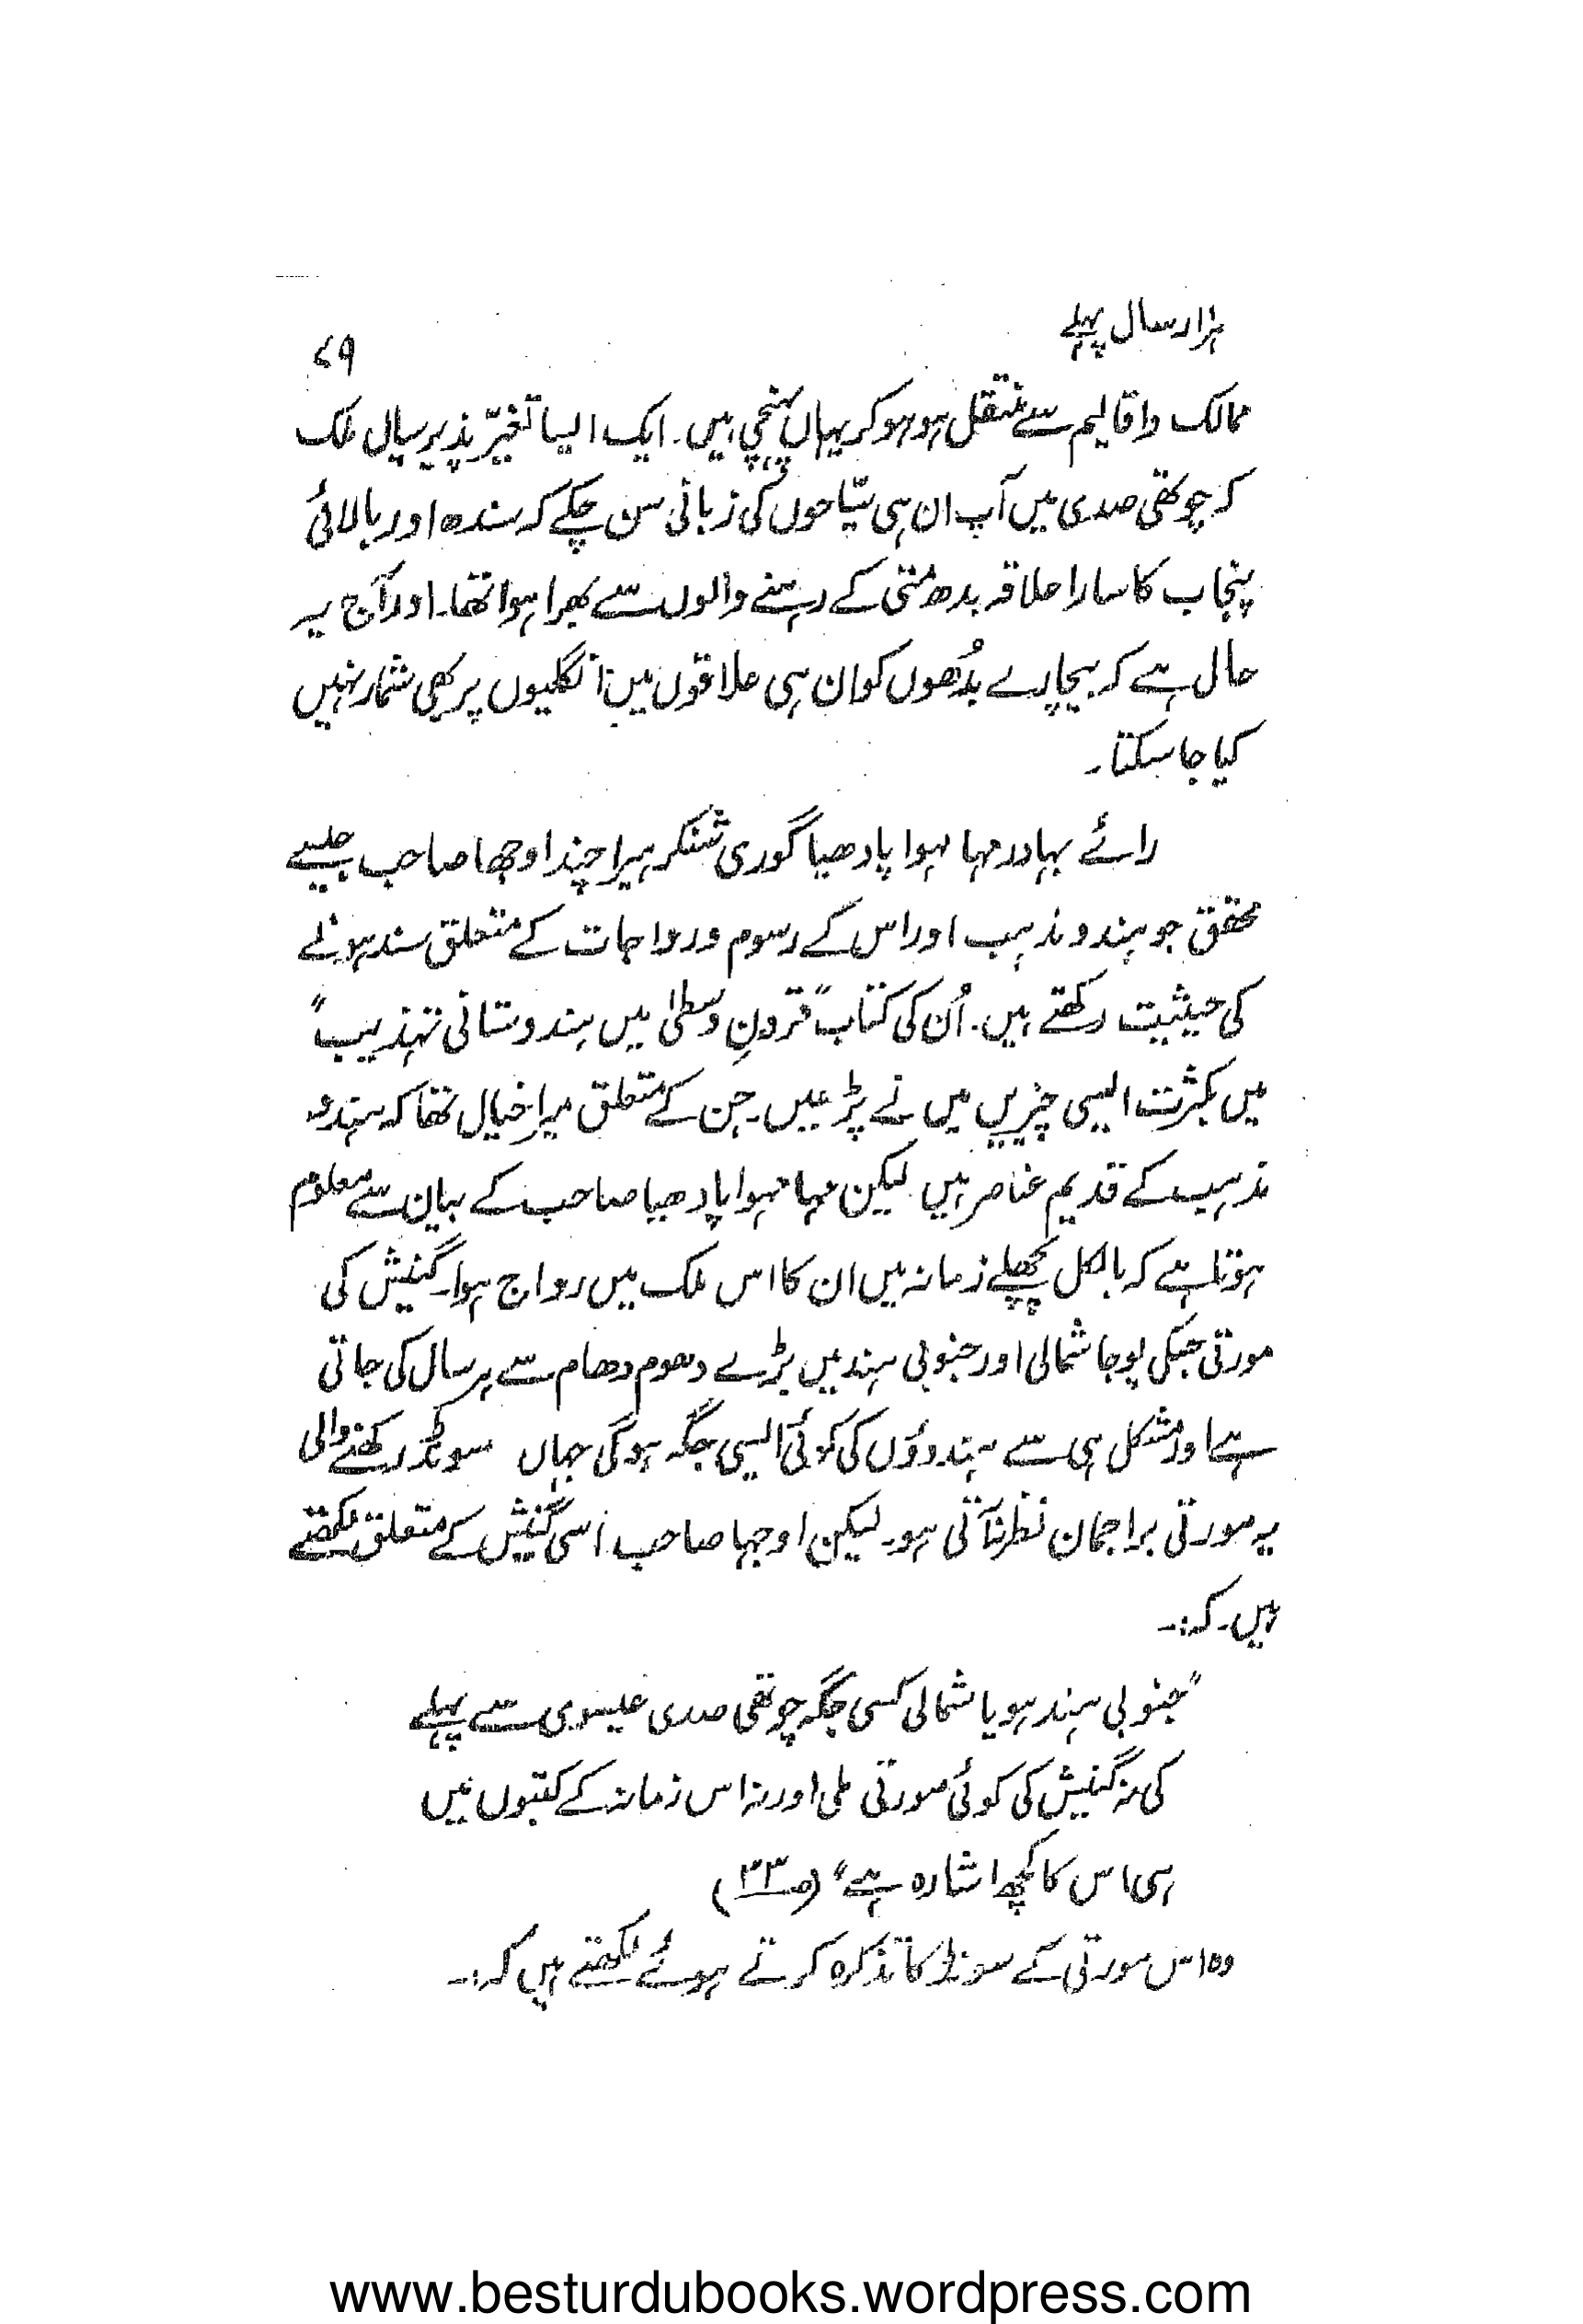 ہزار سال پہلے
۷۹
ممالک واقالیم سے منتقل ہو ہو کر یہاں پہنچی ہیں۔ ایک ایسا تغیّر پذیر سیال ملک
کہ چوتھی صدی میں آپ ان ہی سیّاحوں کی زبانی سن چکے کہ سندھ اور بالائی
پنجاب کا سارا علاقہ بدھ متی کے رہنے والوں سے بھرا ہوا تھا۔ اور آج یہ
حال ہے کہ بیچارے بُدھوں کو ان ہی علاقوں میں انگلیوں پر بھی شمار نہیں
کیا جا سکتا۔
رائے بہادر مہا مہوا پادھیا گوری شنکر ہیرا چند اوجھا صاحب جیسے
محقق جو ہندو مذہب اور اس کے رسوم و رواجات کے متعلق سند ہونے
کی حیثیت رکھتے ہیں۔ اُن کی کتاب "قرونِ وسطیٰ میں ہندوستانی تہذیب"
میں بکثرت ایسی چیزیں میں نے پڑھیں۔ جن کے متعلق میرا خیال تھا کہ ہندو
مذہب کے قدیم عناصر ہیں لیکن مہا مہوا پادھیا صاحب کے بیان سے معلوم
ہوتا ہے کہ بالکل پچھلے زمانہ میں ان کا اس ملک میں رواج ہوا۔ گنیش کی
مورتی جسکی پوجا شمالی اور جنوبی ہند میں بڑے دھوم دھام سے ہر سال کی جاتی
ہے اور مشکل ہی سے ہندوؤں کی کوئی ایسی جگہ ہوگی جہاں سونڈ رکھنے والی
یہ مورتی براجمان نظر نہ آتی ہو۔ لیکن اوجہا صاحب اسی گنیش کے متعلق لکھتے
ہیں۔ کہ:۔
"جنوبی ہند ہو یا شمالی کسی جگہ چوتھی صدی عیسوی سے پہلے
کی نہ گنیش کی کوئی مورتی ملی اور نہ اس زمانہ کے کتبوں میں
ہی اس کا کچھ اشارہ ہے" (ص۳۳)
وہ اس مورتی کے سونڈ کا تذکرہ کرتے ہوئے لکھتے ہیں کہ:۔
www.besturdubooks.wordpress.com